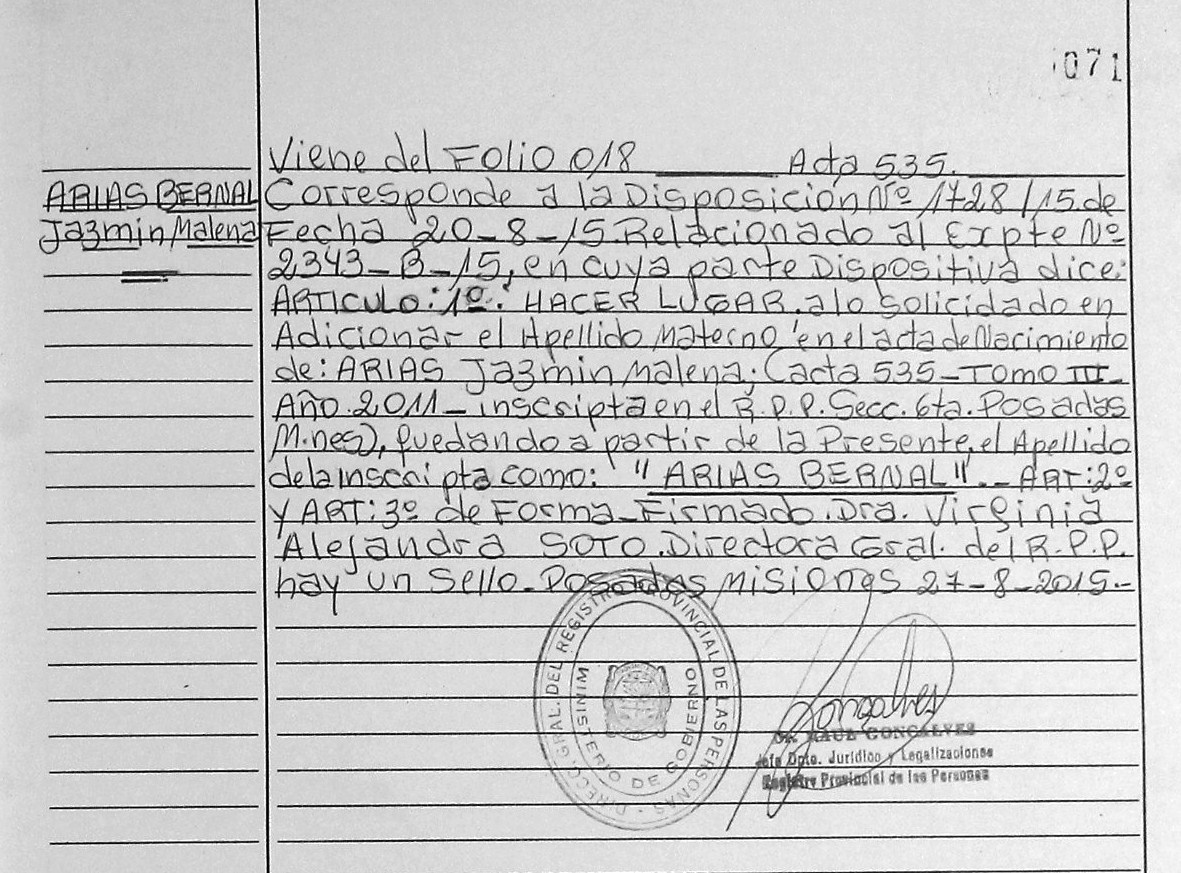 071
Viene del Folio 018 Acta 535.
ARIAS BERNAL
Jazmin Malena
Corresponde a la Disposición Nº 1728/15.de
Fecha 20-8-15.Relacionado al Expte Nº
2343-B-15, en cuya parte Dispositiva dice:
ARTICULO:1º: HACER LUGAR.a lo solicidado en
Adicionar el Apellido Materno en el acta de Nacimiento
de: ARIAS Jazmin Malena; (acta 535-Tomo III-
Año.2011-inscripta en el R.P.P. Secc. 6ta. Posadas
M.nes), quedando a partir de la Presente, el Apellido
de la inscripta como: "ARIAS BERNAL".- ART:2º
y ART:3º de Forma-Firmado.Dra. Virginia
Alejandra SOTO.Directora Gral. del R.P.P.
hay un Sello-Posadas Misiones 27-8-2015.-
DIRECC. GRAL. DEL REGISTRO PROVINCIAL DE LAS PERSONAS
MINISTERIO DE GOBIERNO
Gonçalves
Dr. RAUL GONÇALVES
Jefe Dpto. Jurídico y Legalizaciones
Registro Provincial de las Personas